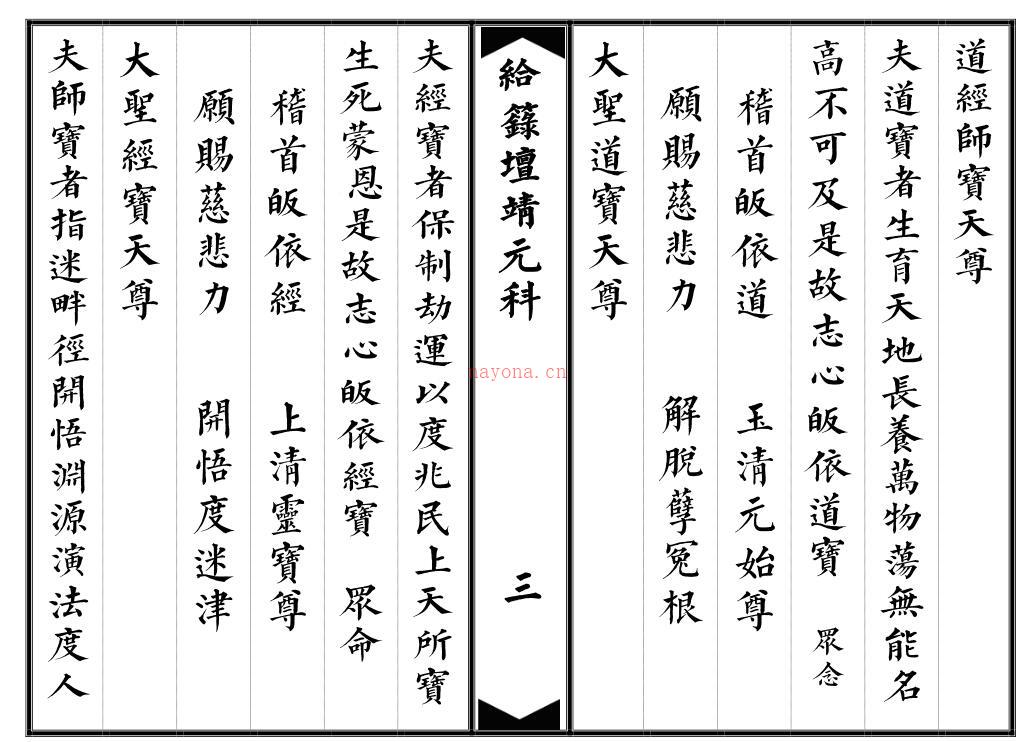 道經師寶天尊
夫道寶者生育天地長養萬物蕩無能名
高不可及是故志心皈依道寶 眾念
稽首皈依道 玉清元始尊
願賜慈悲力 解脫孽冤根
大聖道寶天尊
給籙壇靖元科 三
夫經寶者保制劫運以度兆民上天所寶
生死蒙恩是故志心皈依經寶 眾命
稽首皈依經 上清靈寶尊
願賜慈悲力 開悟度迷津
大聖經寶天尊
夫師寶者指迷畔徑開悟淵源演法度人
nayona.cn